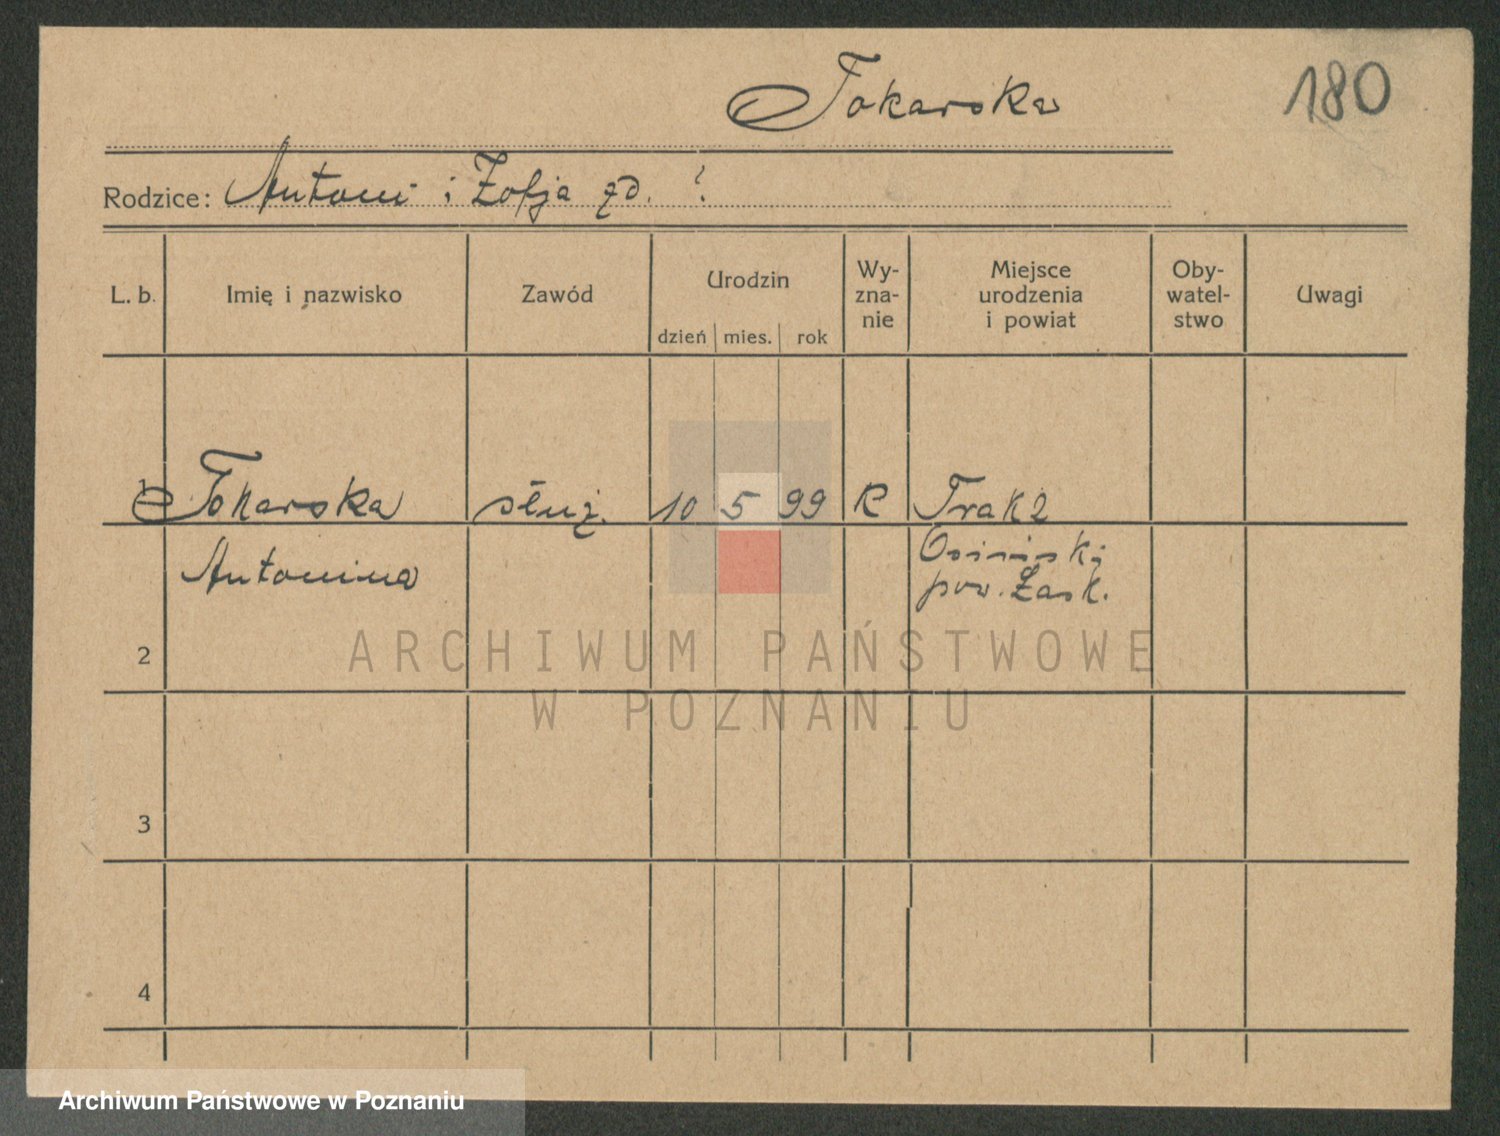 Tokarska
180
Rodzice: Antoni i Zofja zd. ?
L. b. Imię i nazwisko Zawód Urodzin Wy-zna-nie Miejsce urodzenia i powiat Oby-watel-stwo Uwagi
dzień mies. rok
1 Tokarska służ. 10 5 99 R Trakt
Antonina Osiński
pow. Łask.
2
3
4
ARCHIWUM PAŃSTWOWE
W POZNANIU
Archiwum Państwowe w Poznaniu